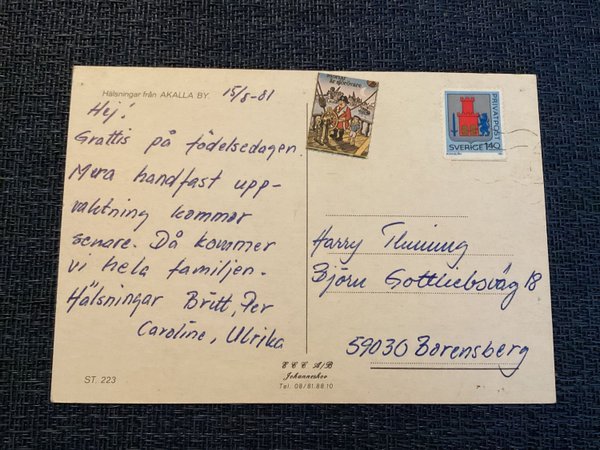 Hälsningar från AKALLA BY.
15/8-81
Hej!
Grattis på födelsedagen.
Mera handfast upp-
vaktning kommer
senare. Då kommer
vi hela familjen.
Hälsningar Britt, Per
Caroline, Ulrika
ST. 223
E C C A/B
Johanneshov
Tel. 08/81.88.10
är sjörövare
PRIVATPOST
SVERIGE 140
Harry
Björn Gottliebsväg 18
59030 Borensberg